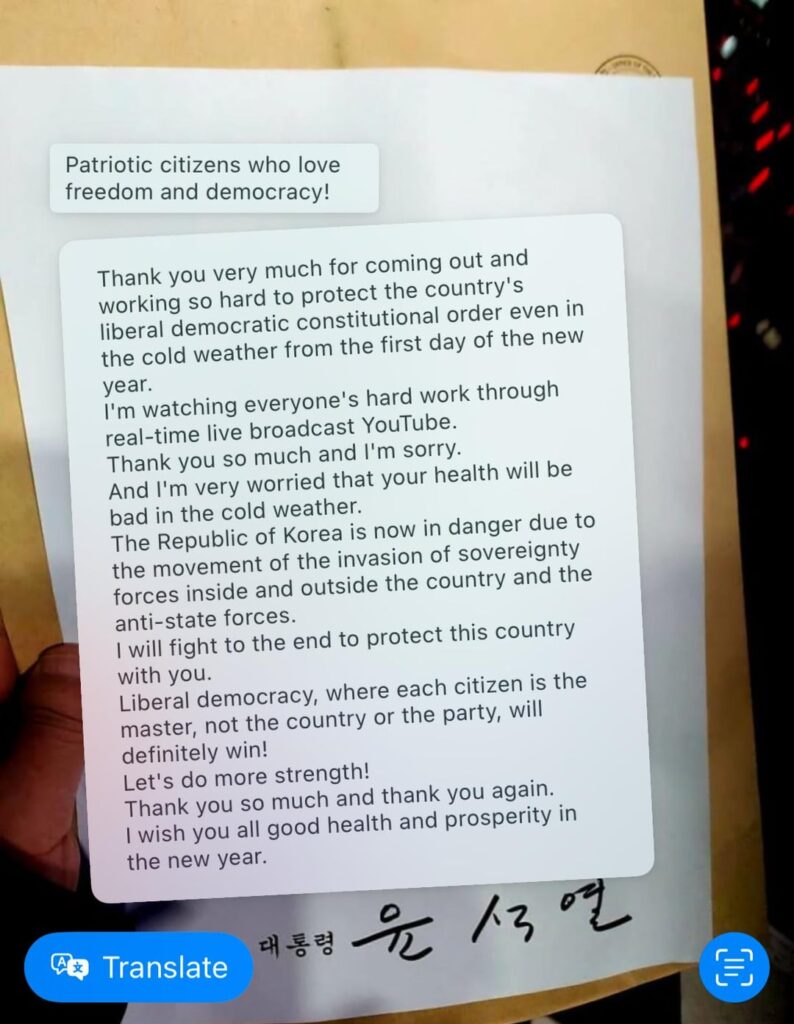 Patriotic citizens who love
freedom and democracy!
Thank you very much for coming out and
working so hard to protect the country's
liberal democratic constitutional order even in
the cold weather from the first day of the new
year.
I'm watching everyone's hard work through
real-time live broadcast YouTube.
Thank you so much and I'm sorry.
And I'm very worried that your health will be
bad in the cold weather.
The Republic of Korea is now in danger due to
the movement of the invasion of sovereignty
forces inside and outside the country and the
anti-state forces.
I will fight to the end to protect this country
with you.
Liberal democracy, where each citizen is the
master, not the country or the party, will
definitely win!
Let's do more strength!
Thank you so much and thank you again.
I wish you all good health and prosperity in
the new year.
대통령 윤석열
Translate